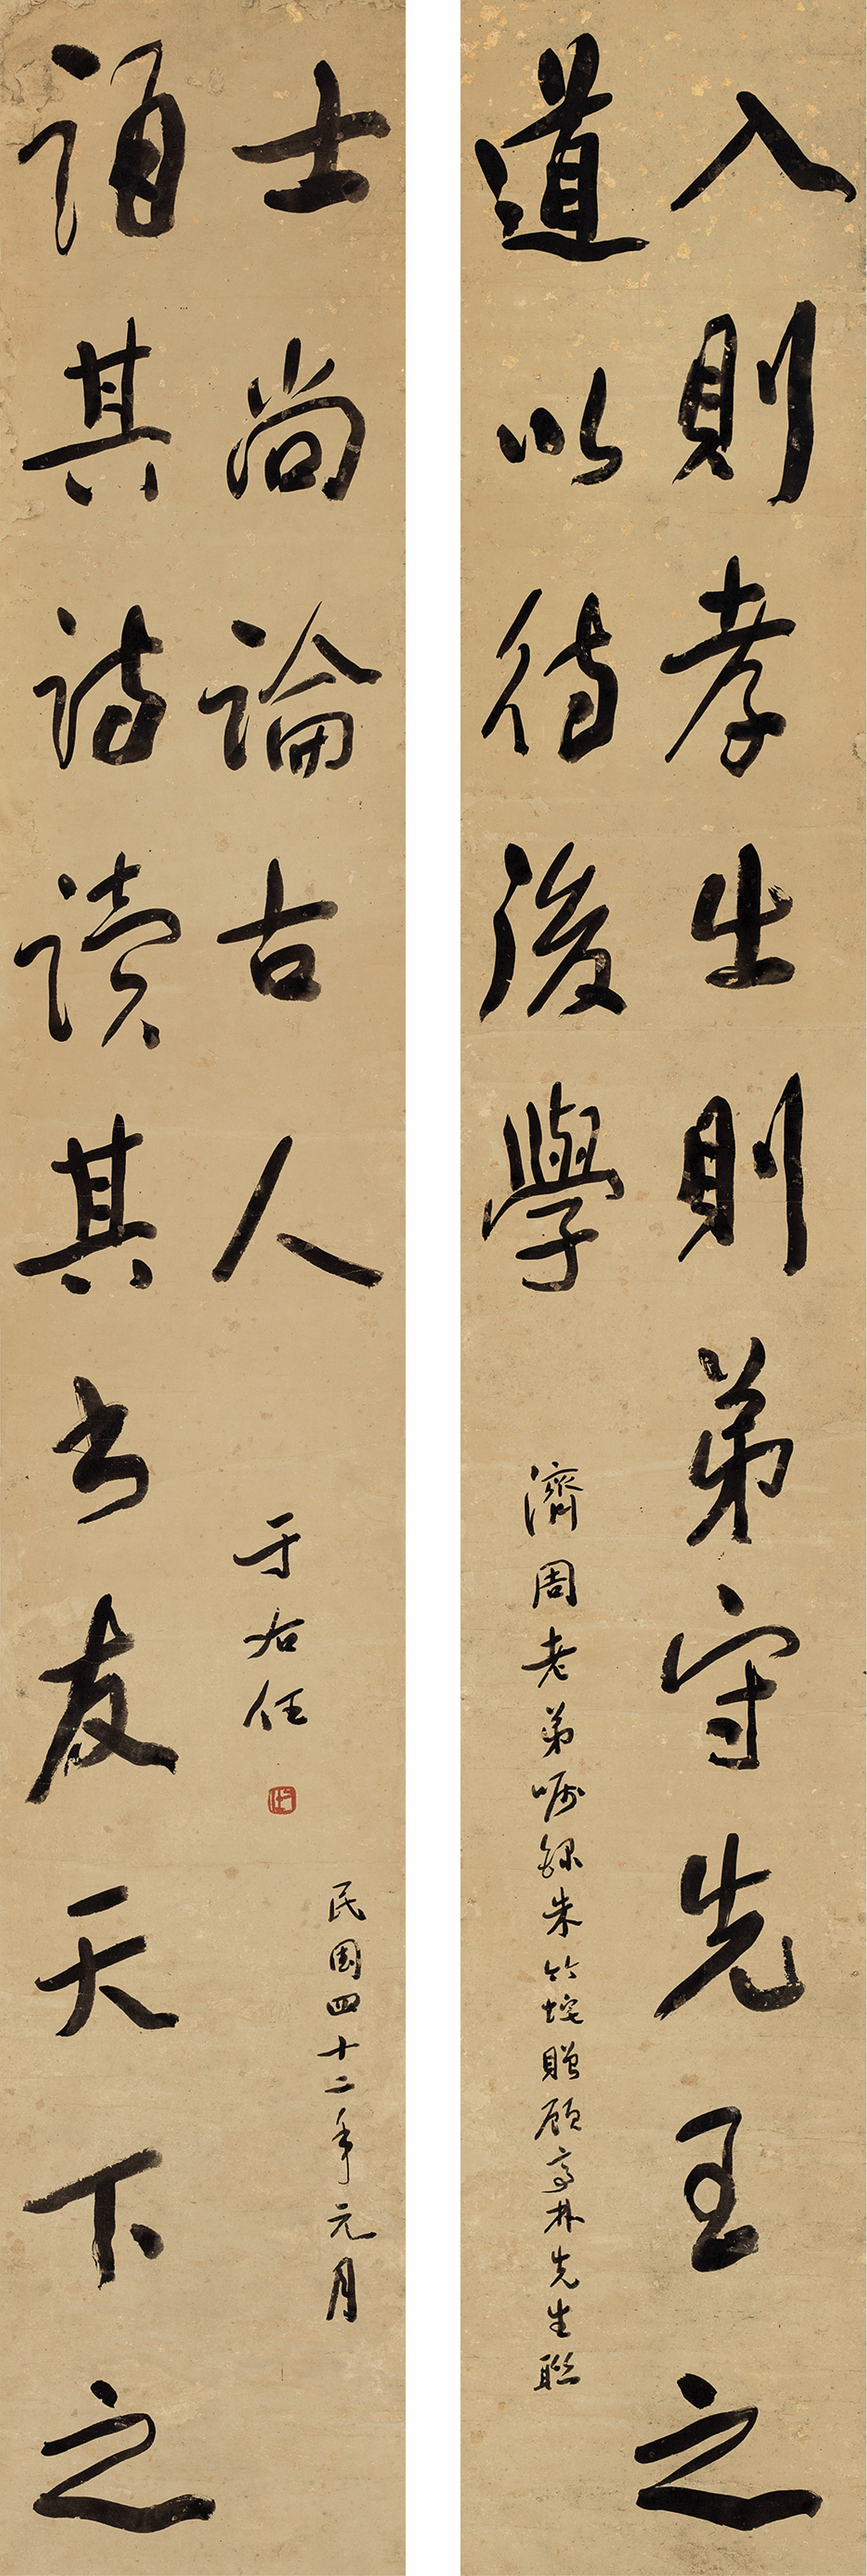 入則孝出則弟守先王之
道以待後學
濟周老弟囑錄朱竹垞贈顧亭林先生聯
誦其詩讀其書友天下之
士尚論古人
民國四十二年元月
于右任
右任